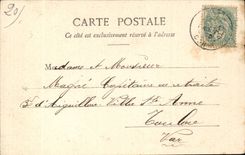 20
CARTE POSTALE
Ce côté est exclusivement réservé à l'adresse
Madame et Monsieur
Magré Capitaine en retraite
5 d'Aiguillon Villa Ste Anne
Toulon
Var